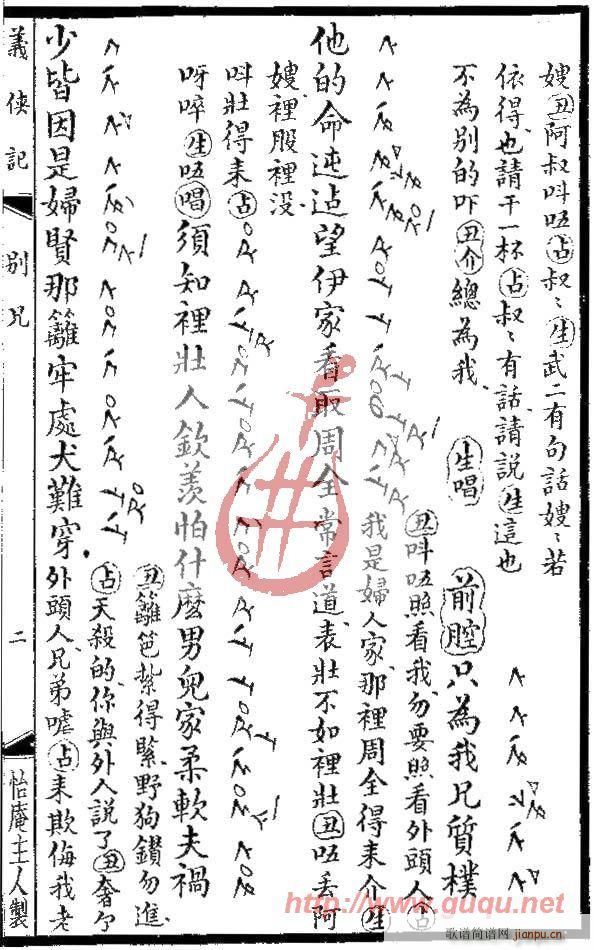 嫂丑阿叔呌唔占叔〻生武二有句話嫂〻若
依得也請干一杯占叔〻有話請說生這也
不為别的吓丑介總為我生唱前腔只為我兄質樸
丑呌唔照看我勿要照看外頭人占
我是婦人家那裡周全得来介生
他的命迍邅望伊家看取周全常言道表壯不如裡壯丑唔丢阿
嫂裡股裡没
呌壯得耒占
呀啐生唔唱須知裡壯人欽羨怕什麽男兒家柔軟夫禍
丑籬笆紥得緊野狗鑚勿進
占天殺的你與外人說了丑奢
少皆因是婦賢那籬牢處犬難穿外頭人兄弟嘘占耒欺侮我老
義俠記
别兄
二
怡庵主人製
http://www.guqu.net
歌谱简谱网
jianpu.cn